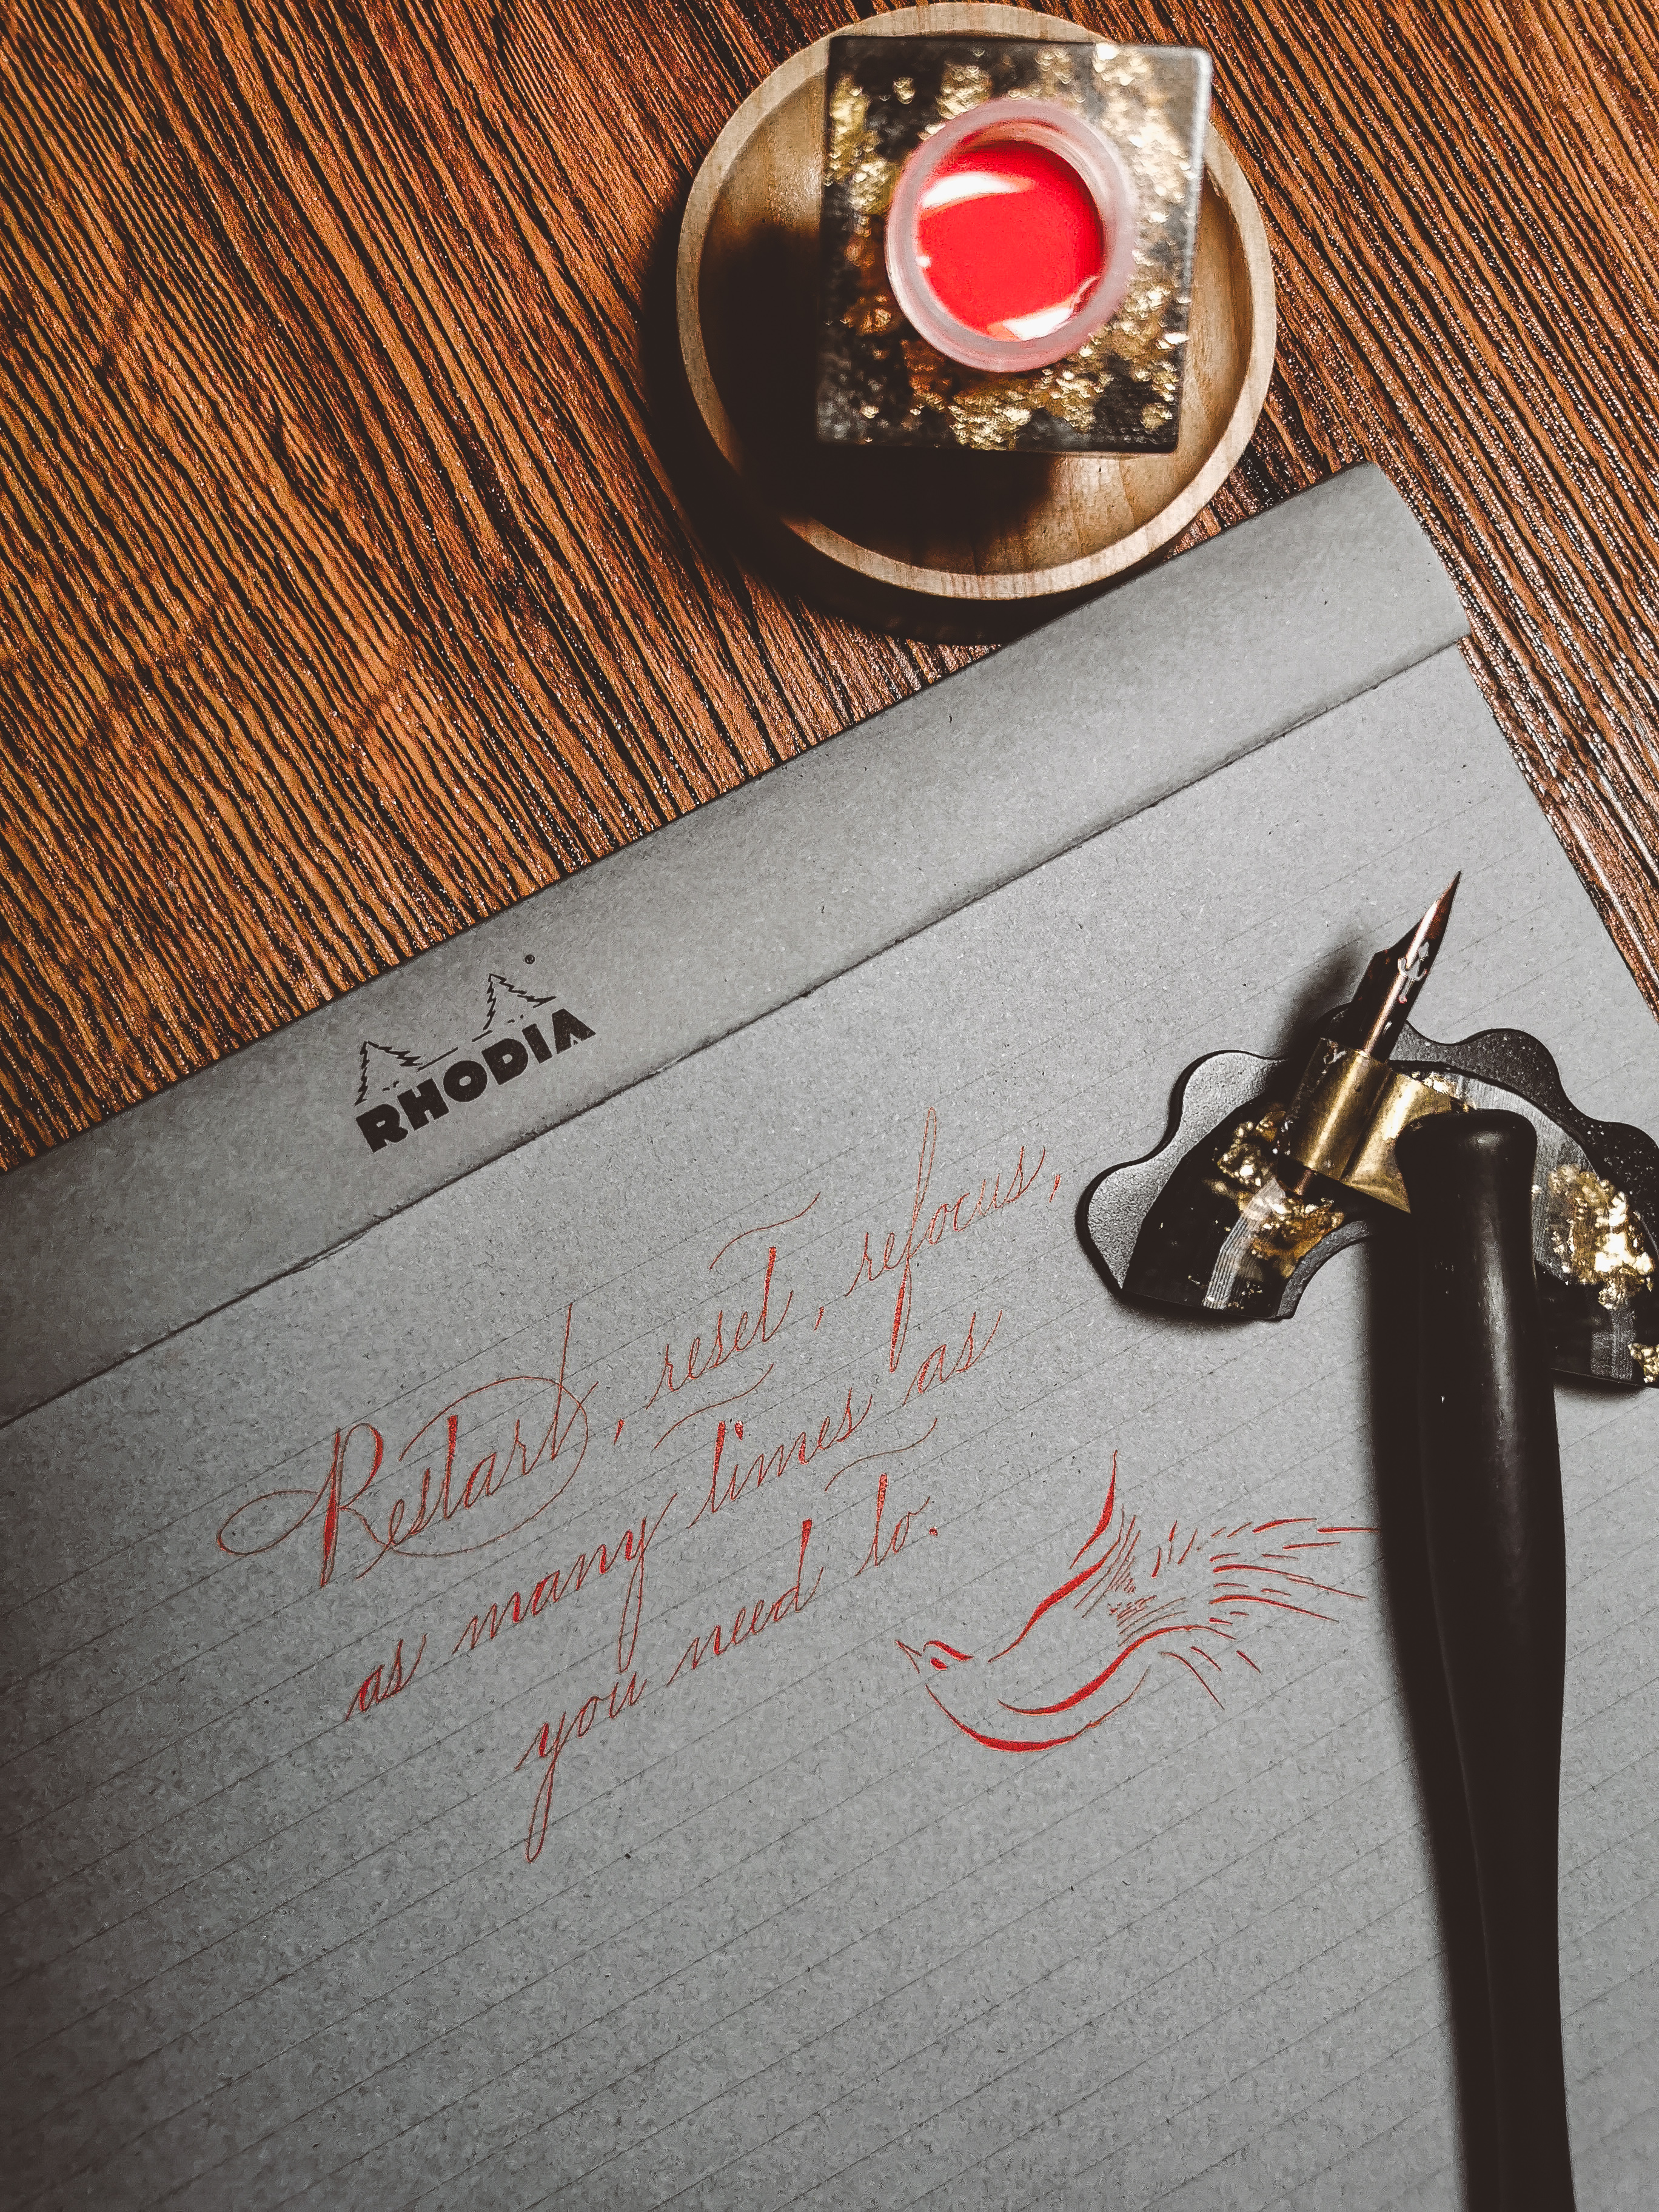 RHODIA
Restart, reset, refocus,
as many times as
you need to.